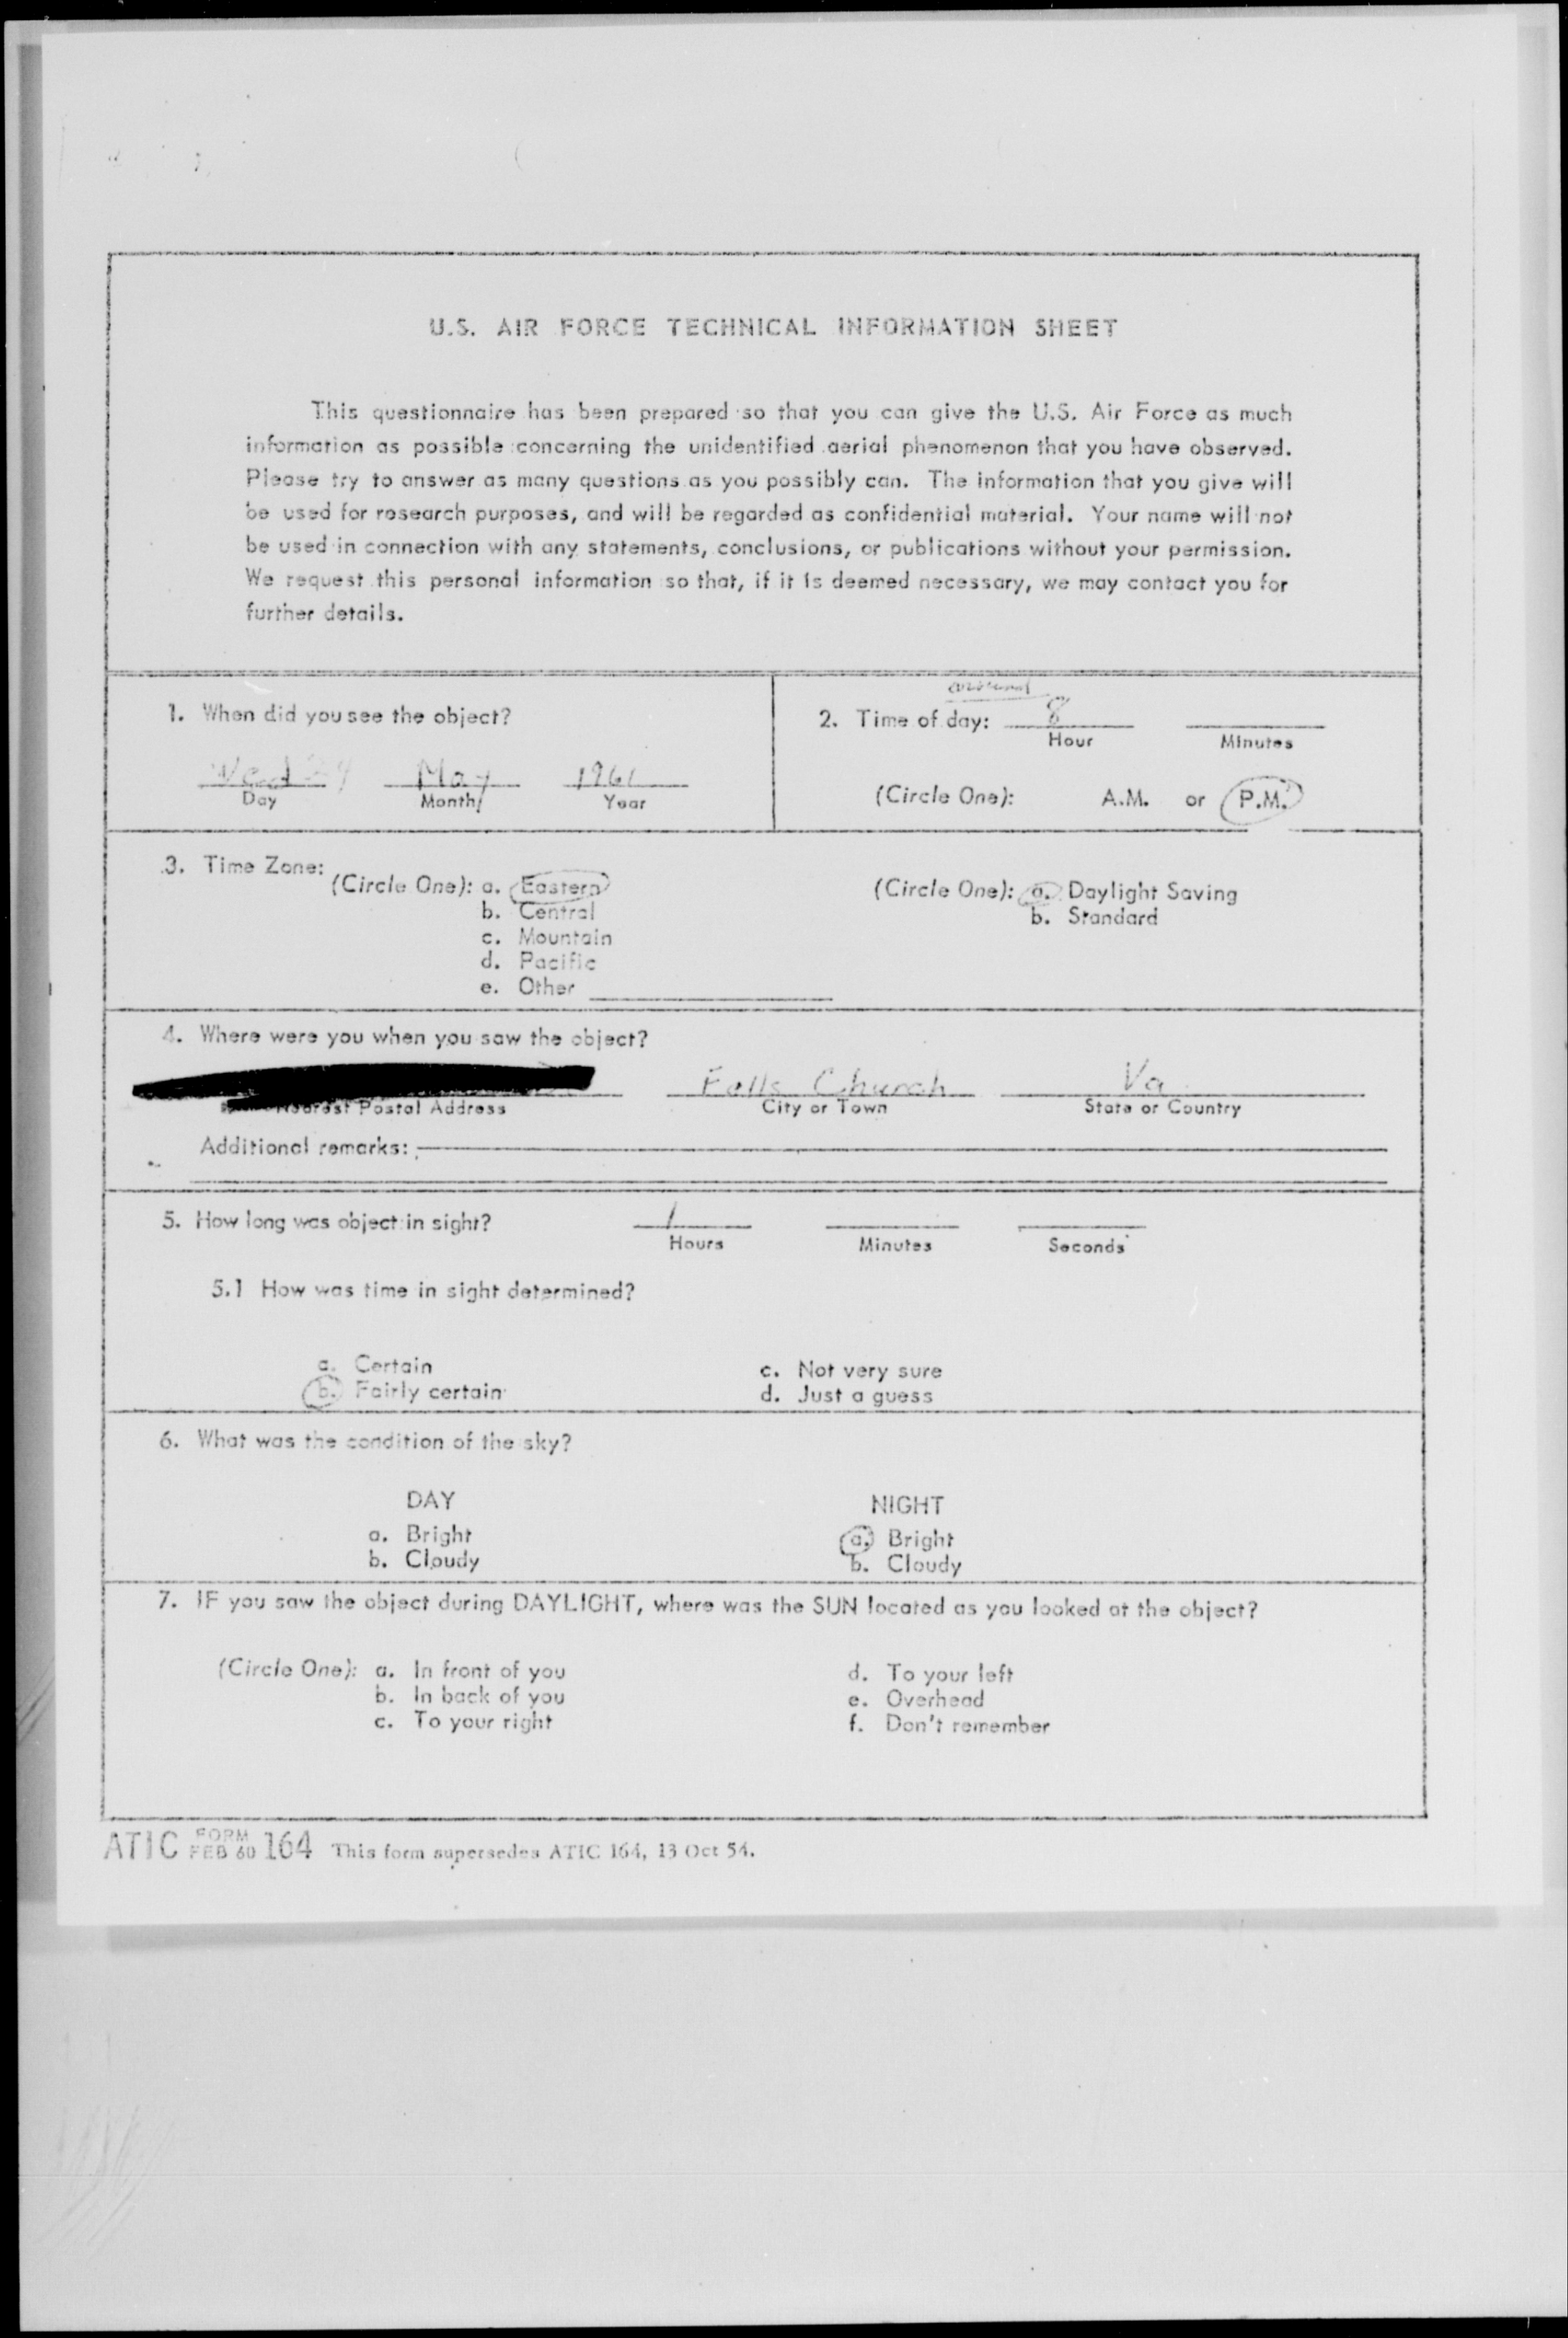 U.S. AIR FORCE TECHNICAL INFORMATION SHEET
This questionnaire has been prepared so that you can give the U.S. Air Force as much
information as possible concerning the unidentified aerial phenomenon that you have observed.
Please try to answer as many questions as you possibly can. The information that you give will
be used for research purposes, and will be regarded as confidential material. Your name will not
be used in connection with any statements, conclusions, or publications without your permission.
We request this personal information so that, if it is deemed necessary, we may contact you for
further details.
1. When did you see the object?
Wed 24 May 1961
Day Month Year
around
2. Time of day: 8
Hour Minutes
(Circle One): A.M. or P.M.
3. Time Zone:
(Circle One): a. Eastern
b. Central
c. Mountain
d. Pacific
e. Other
(Circle One): a. Daylight Saving
b. Standard
4. Where were you when you saw the object?
Falls Church Va
Nearest Postal Address City or Town State or Country
Additional remarks:
5. How long was object in sight? 1
Hours Minutes Seconds
5.1 How was time in sight determined?
a. Certain
b. Fairly certain
c. Not very sure
d. Just a guess
6. What was the condition of the sky?
DAY
a. Bright
b. Cloudy
NIGHT
a. Bright
b. Cloudy
7. IF you saw the object during DAYLIGHT, where was the SUN located as you looked at the object?
(Circle One): a. In front of you
b. In back of you
c. To your right
d. To your left
e. Overhead
f. Don't remember
ATIC FORM FEB 60 164 This form supersedes ATIC 164, 13 Oct 54.